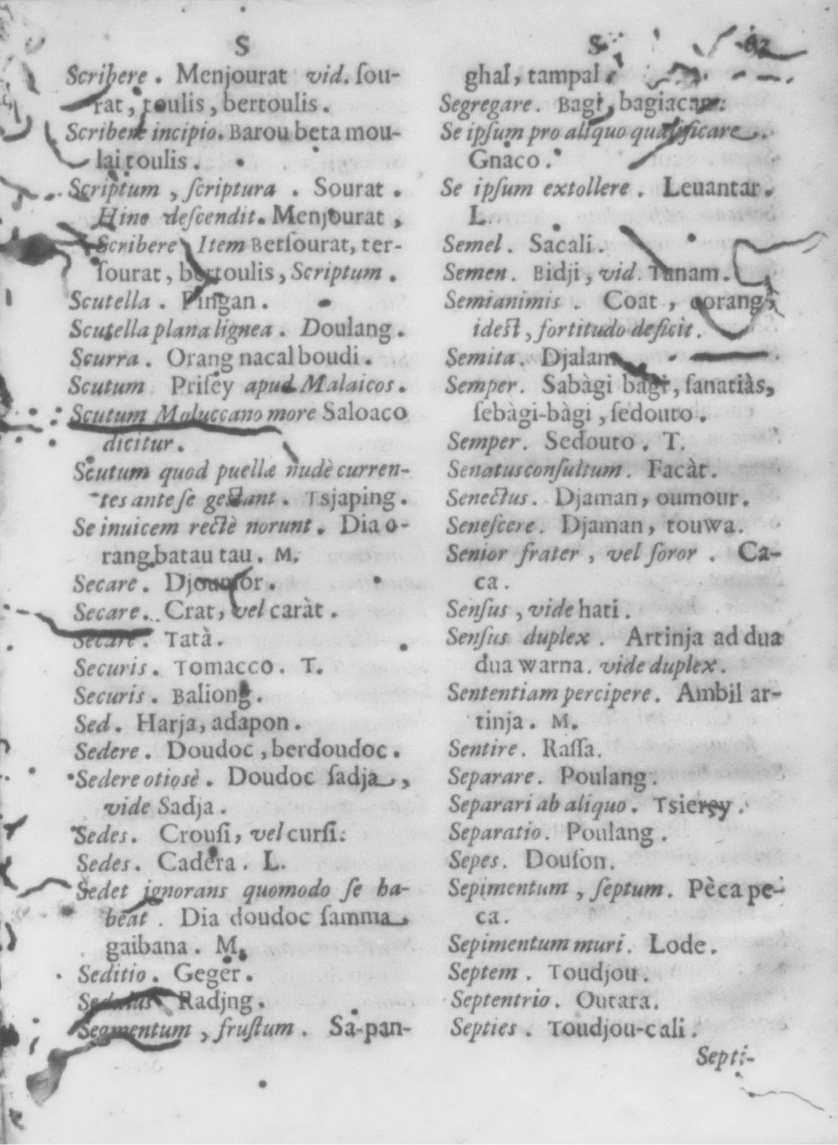 S
Scribere. Menjourat vid. ſou-
rat, toulis, bertoulis.
Scribere incipio. Barou beta mou-
lai toulis.
Scriptum, ſcriptura. Sourat.
Hinc deſcendit. Menjourat,
Scribere Item Berſourat, ter-
ſourat, bertoulis, Scriptum.
Scutella. Pingan.
Scutella plana lignea. Doulang.
Scurra. Orang nacal boudi.
Scutum Priſey apud Malaicos.
Scutum Moluccano more Saloaco
dicitur.
Scutum quod puellæ nudè curren-
tes ante ſe geſtant. Tsjaping.
Se inuicem rectè norunt. Dia o-
rang batau tau. M.
Secare. 
Secare. Crat, vel caràt.
Secare. Tatà.
Securis. Tomacco. T.
Securis. Baliong.
Sed. Harja, adapon.
Sedere. Doudoc, berdoudoc.
Sedere otiosè. Doudoc ſadja,
vide Sadja.
Sedes. Crouſi, vel curſi.
Sedes. Cadèra. L.
Sedet ignorans quomodo ſe ha-
beat. Dia doudoc ſamma
gaibana. M.
Seditio. Geger.
Sedulus Radjng.
Segmentum, fruſtum. Sa-pan-
S 82
ghal, tampal.
Segregare. Bagi,
Se ipſum pro aliquo
Gnaco.
Se ipſum extollere. Leuantar.
L.
Semel. Sacali.
Semen. Bidji, vid. Tanam.
Semianimis. Coat, oorang,
ideſt, fortitudo deficit.
Semita. Djalan
Semper. Sabàgi bàgi, ſanatiàs,
ſebàgi-bàgi, ſedouto.
Semper. Sedouto. T.
Senatusconſultum. Facàt.
Senectus. Djaman, oumour.
Seneſcere. Djaman, touwa.
Senior frater, vel ſoror. Ca-
ca.
Senſus, vide hati.
Senſus duplex. Artinja ad dua
dua warna. vide duplex.
Sententiam percipere. Ambil ar-
tinja. M.
Sentire. Raſſa.
Separare. Poulang.
Separari ab aliquo. Tsierey.
Separatio. Poulang.
Sepes. Douſon.
Sepimentum, ſeptum. Pèca pe-
ca.
Sepimentum muri. Lode.
Septem. Toudjou.
Septentrio. Outara.
Septies. Toudjou-cali.
Septi-